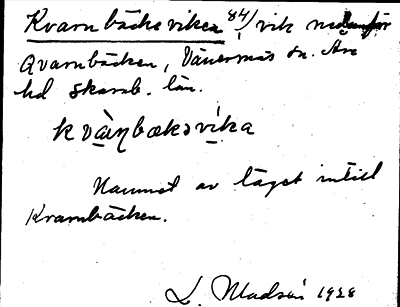 Kvarnbäcksviken 84/ vik nedanför
Qvarnbäcken, Vänersnäs sn. Åse
hd Skarab. län.
kvàṇbæksvika
Namnet av läget intill
Kvarnbäcken.
L. Madsén 1928